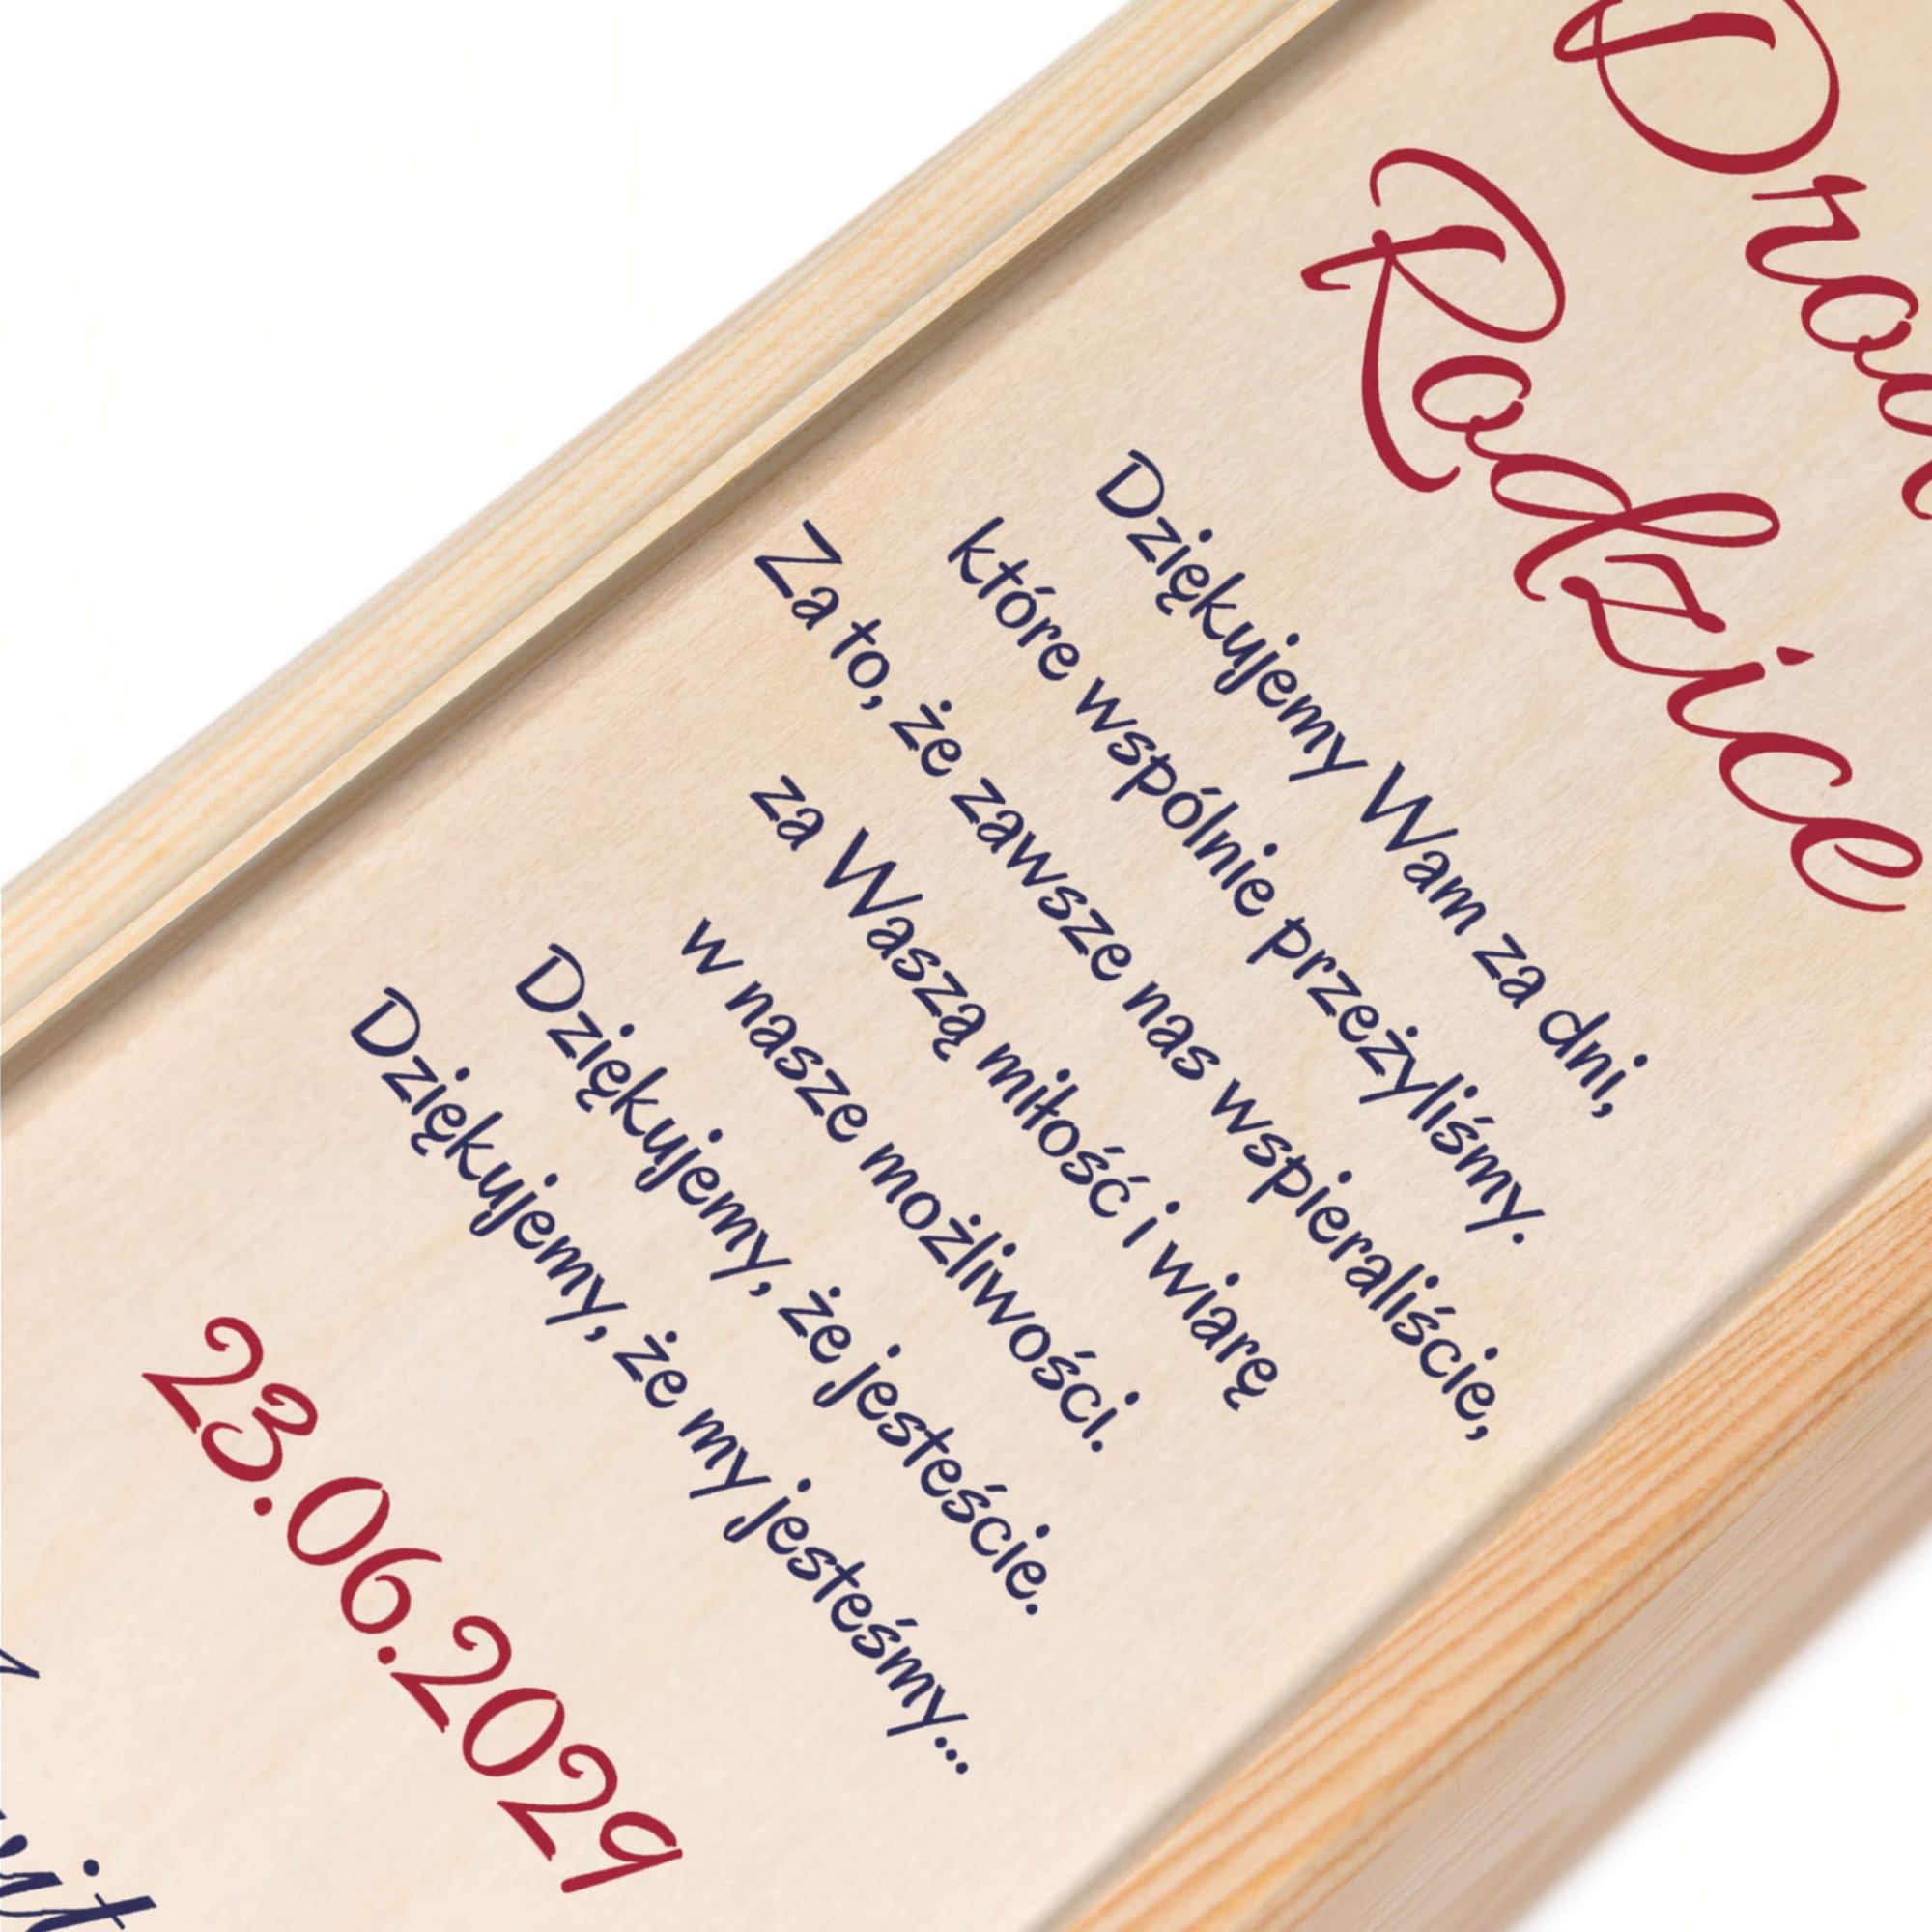 Rodzice
Dziękujemy Wam za dni,
które wspólnie przeżyliśmy.
Za to, że zawsze nas wspieraliście,
za Waszą miłość i wiarę
w nasze możliwości.
Dziękujemy, że jesteście.
Dziękujemy, że my jesteśmy...
23.06.2029